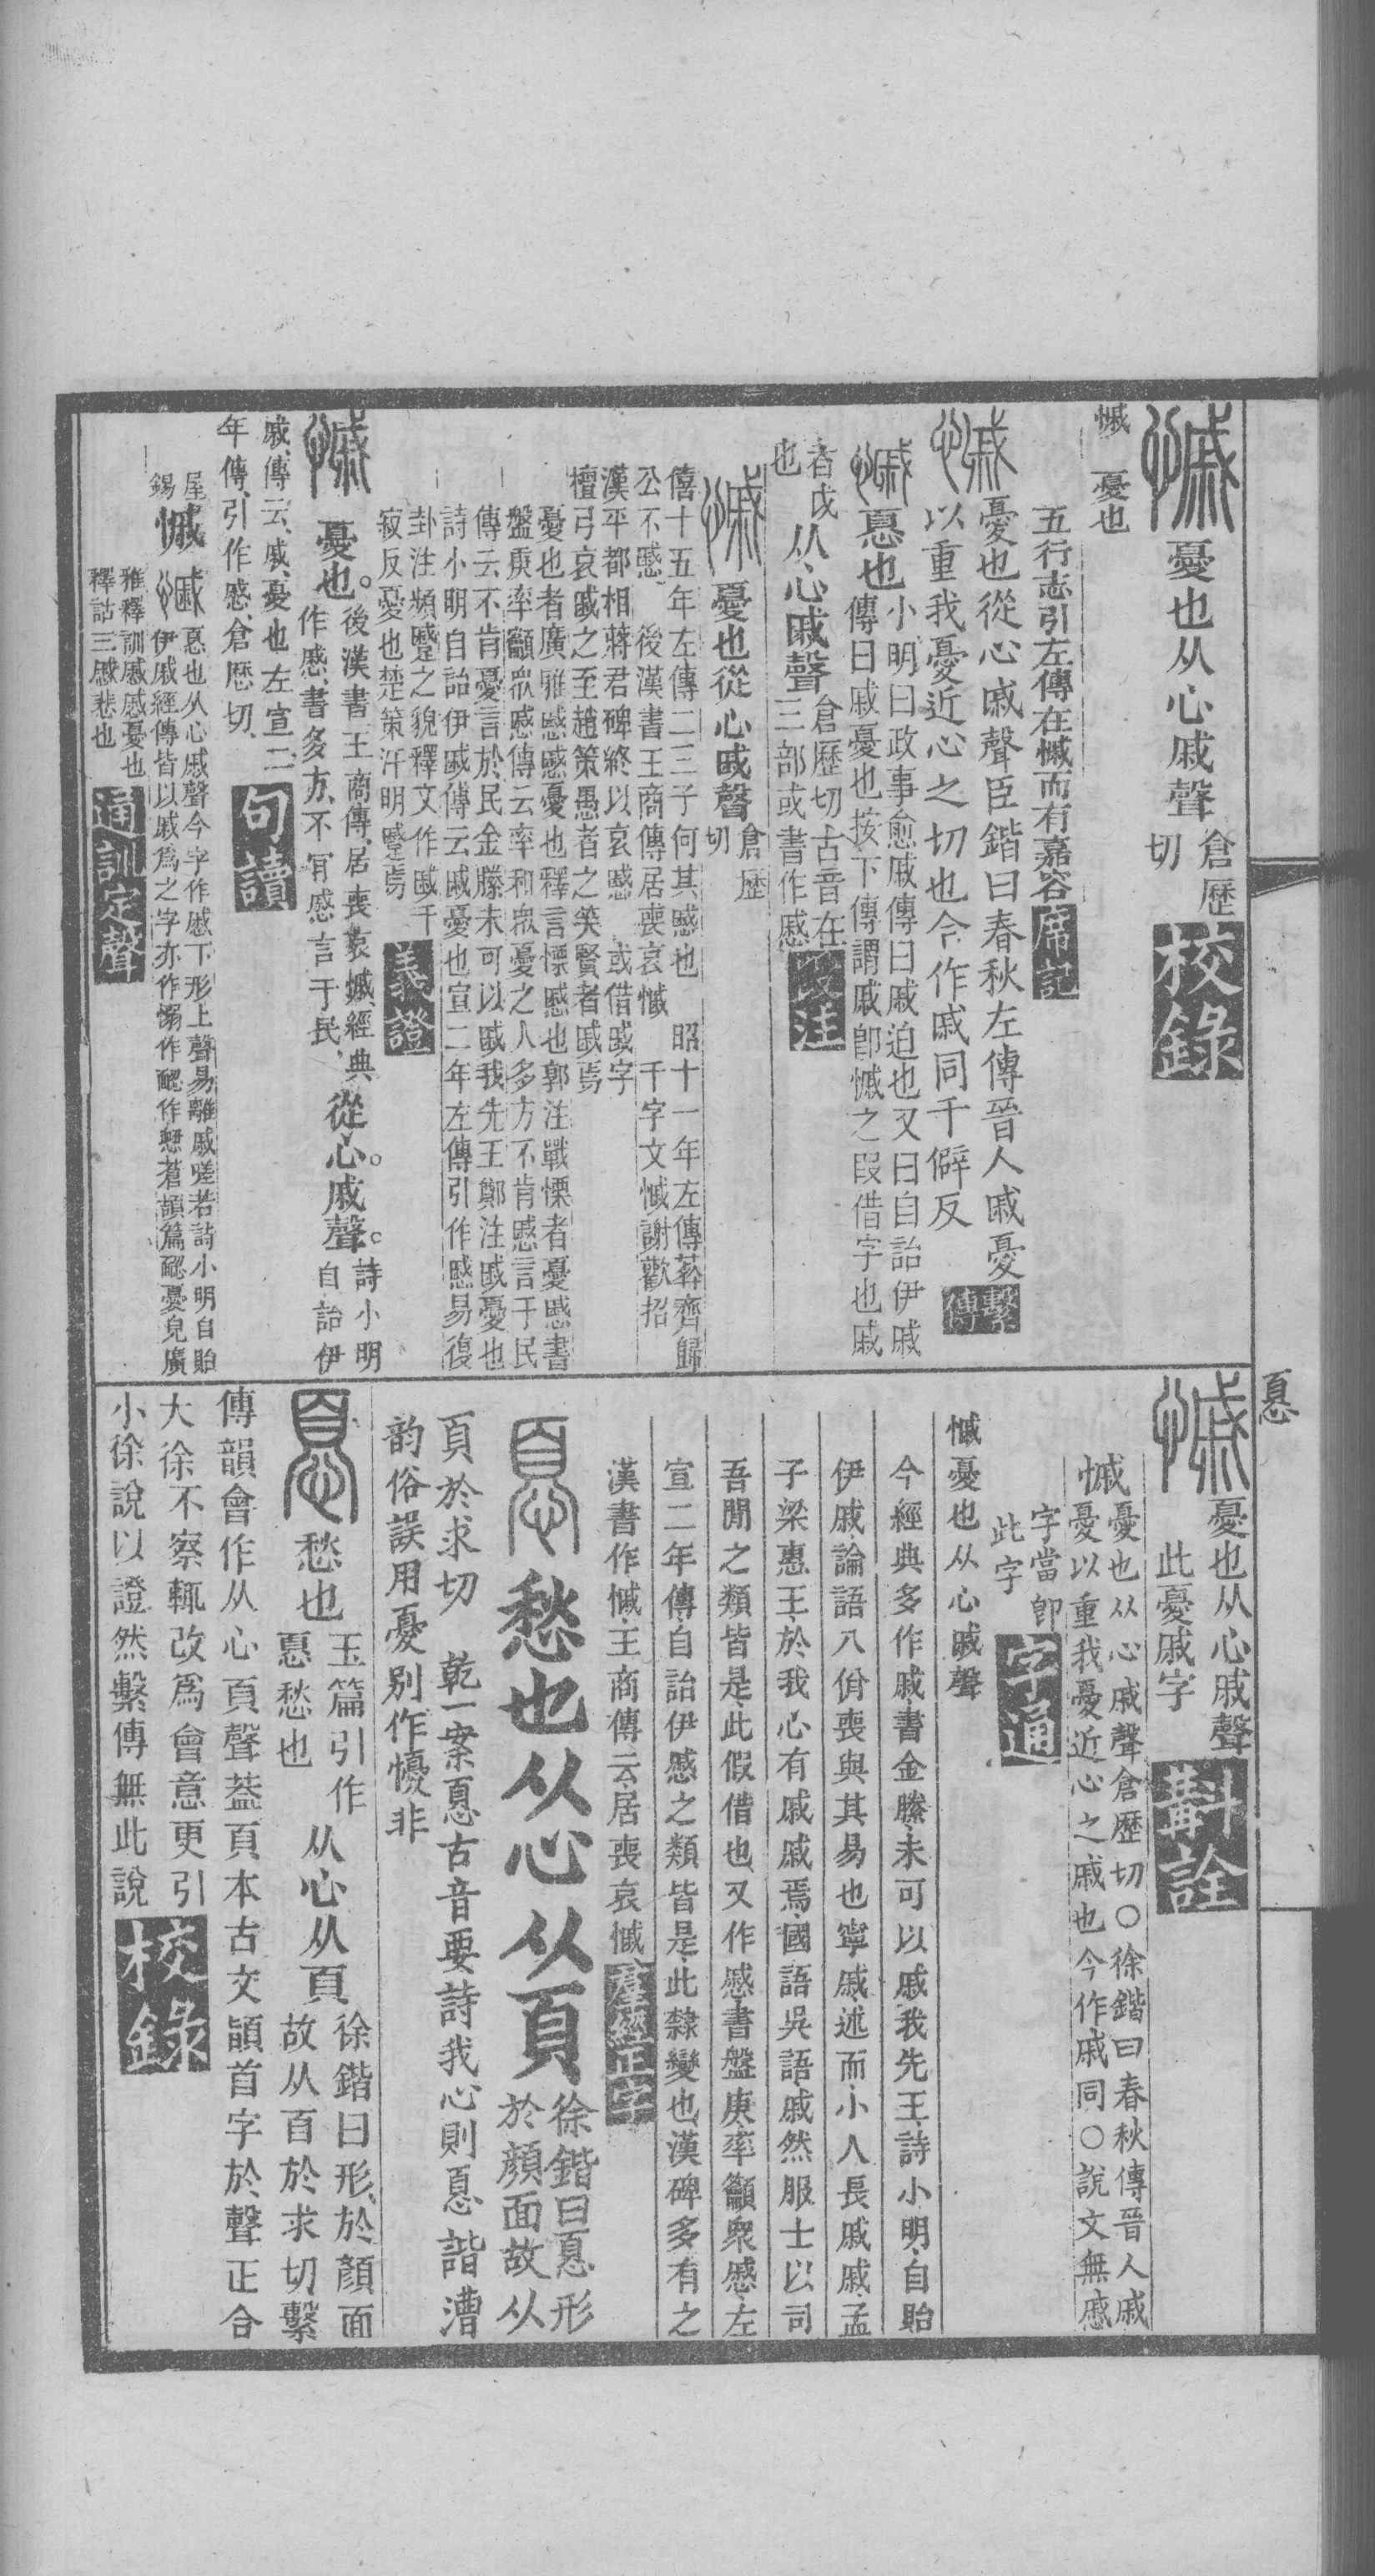 慽憂也从心戚聲倉歷
切校錄
慽 憂也
五行志引左傳在慽而有嘉容席記
慽憂也從心戚聲臣鍇曰春秋左傳晉人戚憂
以重我憂近心之切也今作戚同千僻反繫傳
慽惪也小明曰政事愈戚傳曰戚迫也又曰自詒伊戚
傳曰戚憂也按下傳謂戚卽慽之叚借字也戚
者戉
也从心戚聲倉歷切古音在
三部或書作慼段注
慽憂也從心戚聲倉歷
切
僖十五年左傳二三子何其慼也 昭十一年左傳葬齊歸
公不慼 後漢書王商傳居喪哀慽 千字文慽謝歡招
漢平都相蔣君碑終以哀慼 或借戚字
檀弓哀戚之至趙策愚者之笑賢者戚焉
憂也者廣雅慼慼憂也釋言慄慼也郭注戰慄者憂慼書
盤庚率籲眾慼傳云率和眾憂之人多方不肯慼言于民
傳云不肯憂言於民金縢未可以戚我先王鄭注戚憂也
詩小明自詒伊戚傳云戚憂也宣二年左傳引作慼易復
卦注頻蹙之貌釋文作戚千
寂反憂也楚策汗明蹙焉義證
慽憂也。後漢書王商傳、居喪哀慽、經典
作慼、書多方、不肎慼言于民、從心。戚聲。詩小明
自詒伊
戚、傳云、戚、憂也左宣二
年傳、引作慼、倉歷切、句讀
屋
錫慽慽惪也从心戚聲今字作慼下形上聲易離戚嗟若詩小明自貽
伊戚經傳皆以戚爲之字亦作愵作慦作愁蒼頡篇慦憂皃廣
雅釋訓慼慼憂也
釋詁三慼悲也通訓定聲
惪
慽憂也从心戚聲
此憂戚字斠詮
慽憂也从心戚聲倉歷切〇徐鍇曰春秋傳晉人戚
憂以重我憂近心之戚也今作戚同〇說文無慼
字當卽
此字字通
慽憂也从心戚聲
今經典多作戚書金縢未可以戚我先王詩小明自貽
伊戚論語八佾喪與其易也寧戚述而小人長戚戚孟
子梁惠王於我心有戚戚焉國語吳語戚然服士以司
吾閒之類皆是此假借也又作慼書盤庚率籲衆慼左
宣二年傳自詒伊慼之類皆是此隸變也漢碑多有之
漢書作慽王商傳云居喪哀慽
惪愁也从心从頁徐鍇曰惪形
於顏面故从
頁於求切 乾一案惪古音要詩我心則惪諧漕
韵俗誤用憂别作懮非
惪愁也玉篇引作
惪愁也从心从頁徐鍇曰形於顏面
故从頁於求切繫
傳韻會作从心頁聲葢頁本古文䭫首字於聲正合
大徐不察輒改爲會意更引
小徐說以證然繫傳無此說校錄